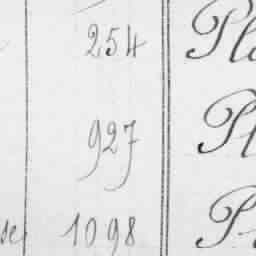 254 Pl
927 Pl
se 1098 P